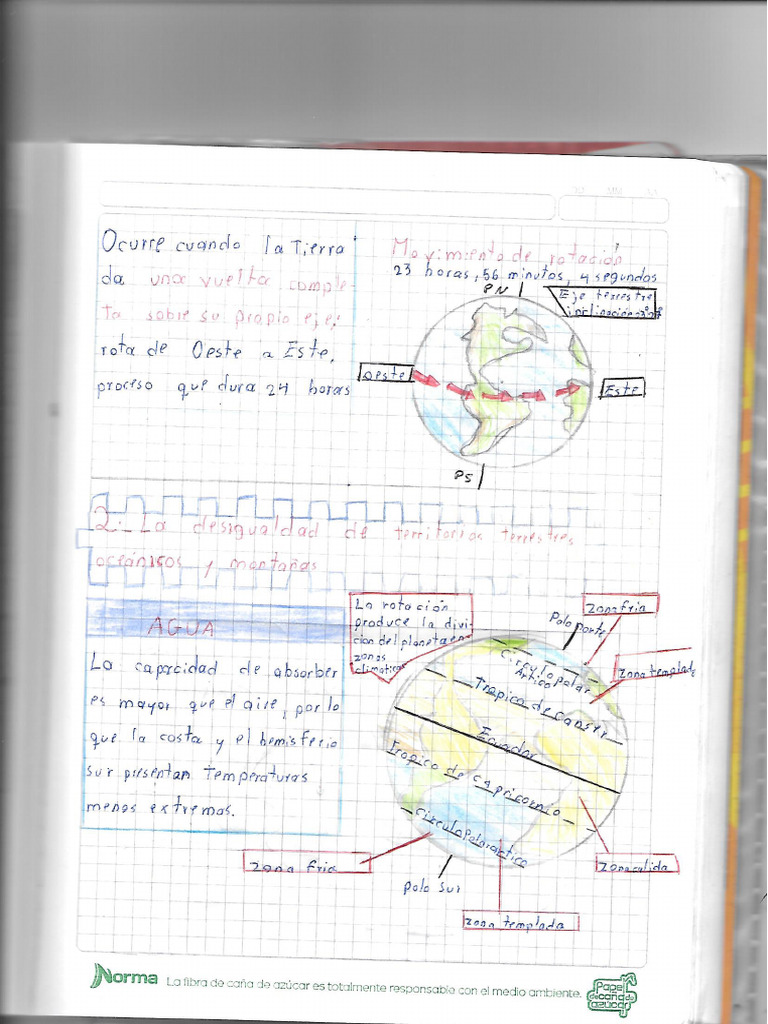 DD MM AA
Ocurre cuando la Tierra
da una vuelta comple
ta sobre su propio eje;
rota de Oeste a Este,
proceso que dura 24 horas
Movimiento de rotación
23 horas, 56 minutos, 4 segundos
PN
Eje terrestre
inclinación
Oeste
Este
PS
2.- La desigualdad de territorios terrestres
oceánicos y montañas
AGUA
La capacidad de absorber
es mayor que el aire, por lo
que la costa y el hemisferio
sur presentan Temperaturas
menos extremas.
La rotación
produce la divi
cion del planeta en
zonas
climaticas
Polo norte
Zona fria
Zona templada
Circulo polar
Artico
Tropico de cancer
Ecuador
Tropico de capricornio
Circulo Polar artico
Zona fria
Polo Sur
Zona calida
Zona templada
Norma La fibra de caña de azúcar es totalmente responsable con el medio ambiente.
Papel
de caña de
azúcar